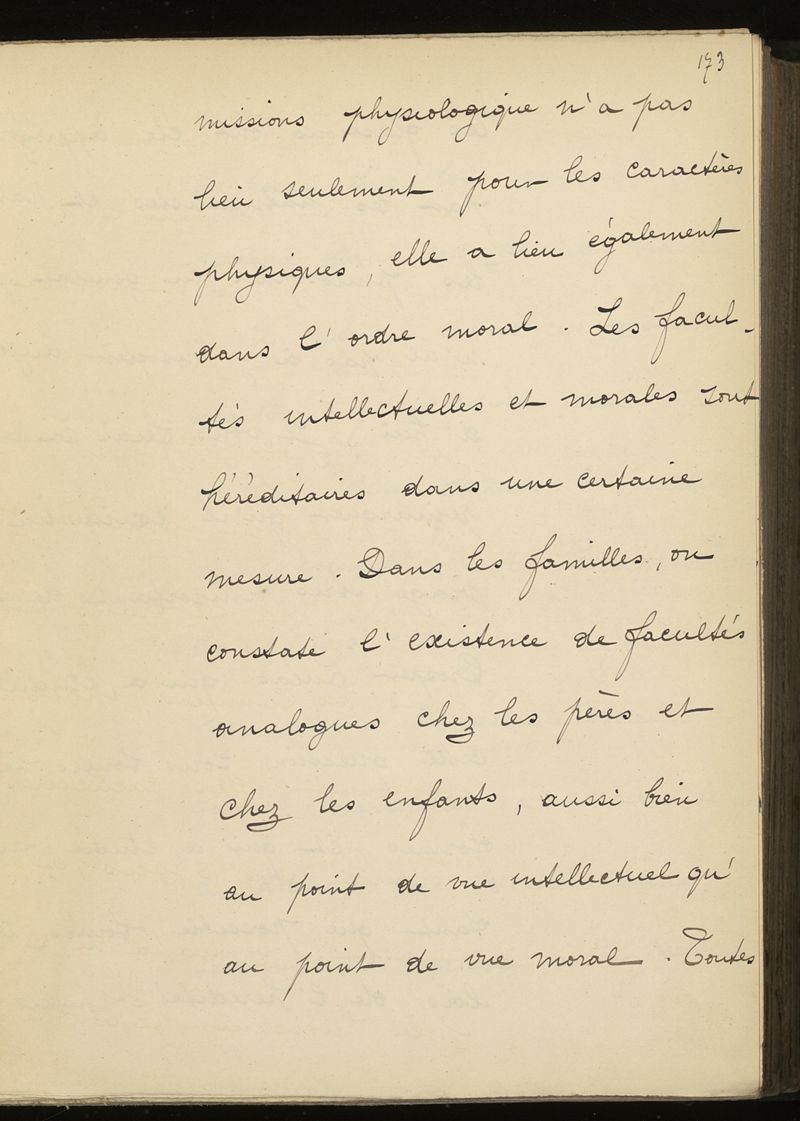 173
missions physiologique n'a pas
lieu seulement pour les caractères
physiques, elle a lieu également
dans l'ordre moral. Les facul-
tés intellectuelles et morales sont
héréditaires dans une certaine
mesure. Dans les familles, on
constate l'existence de facultés
analogues chez les pères et
chez les enfants, aussi bien
au point de vue intellectuel qu'
au point de vue moral. Toutes